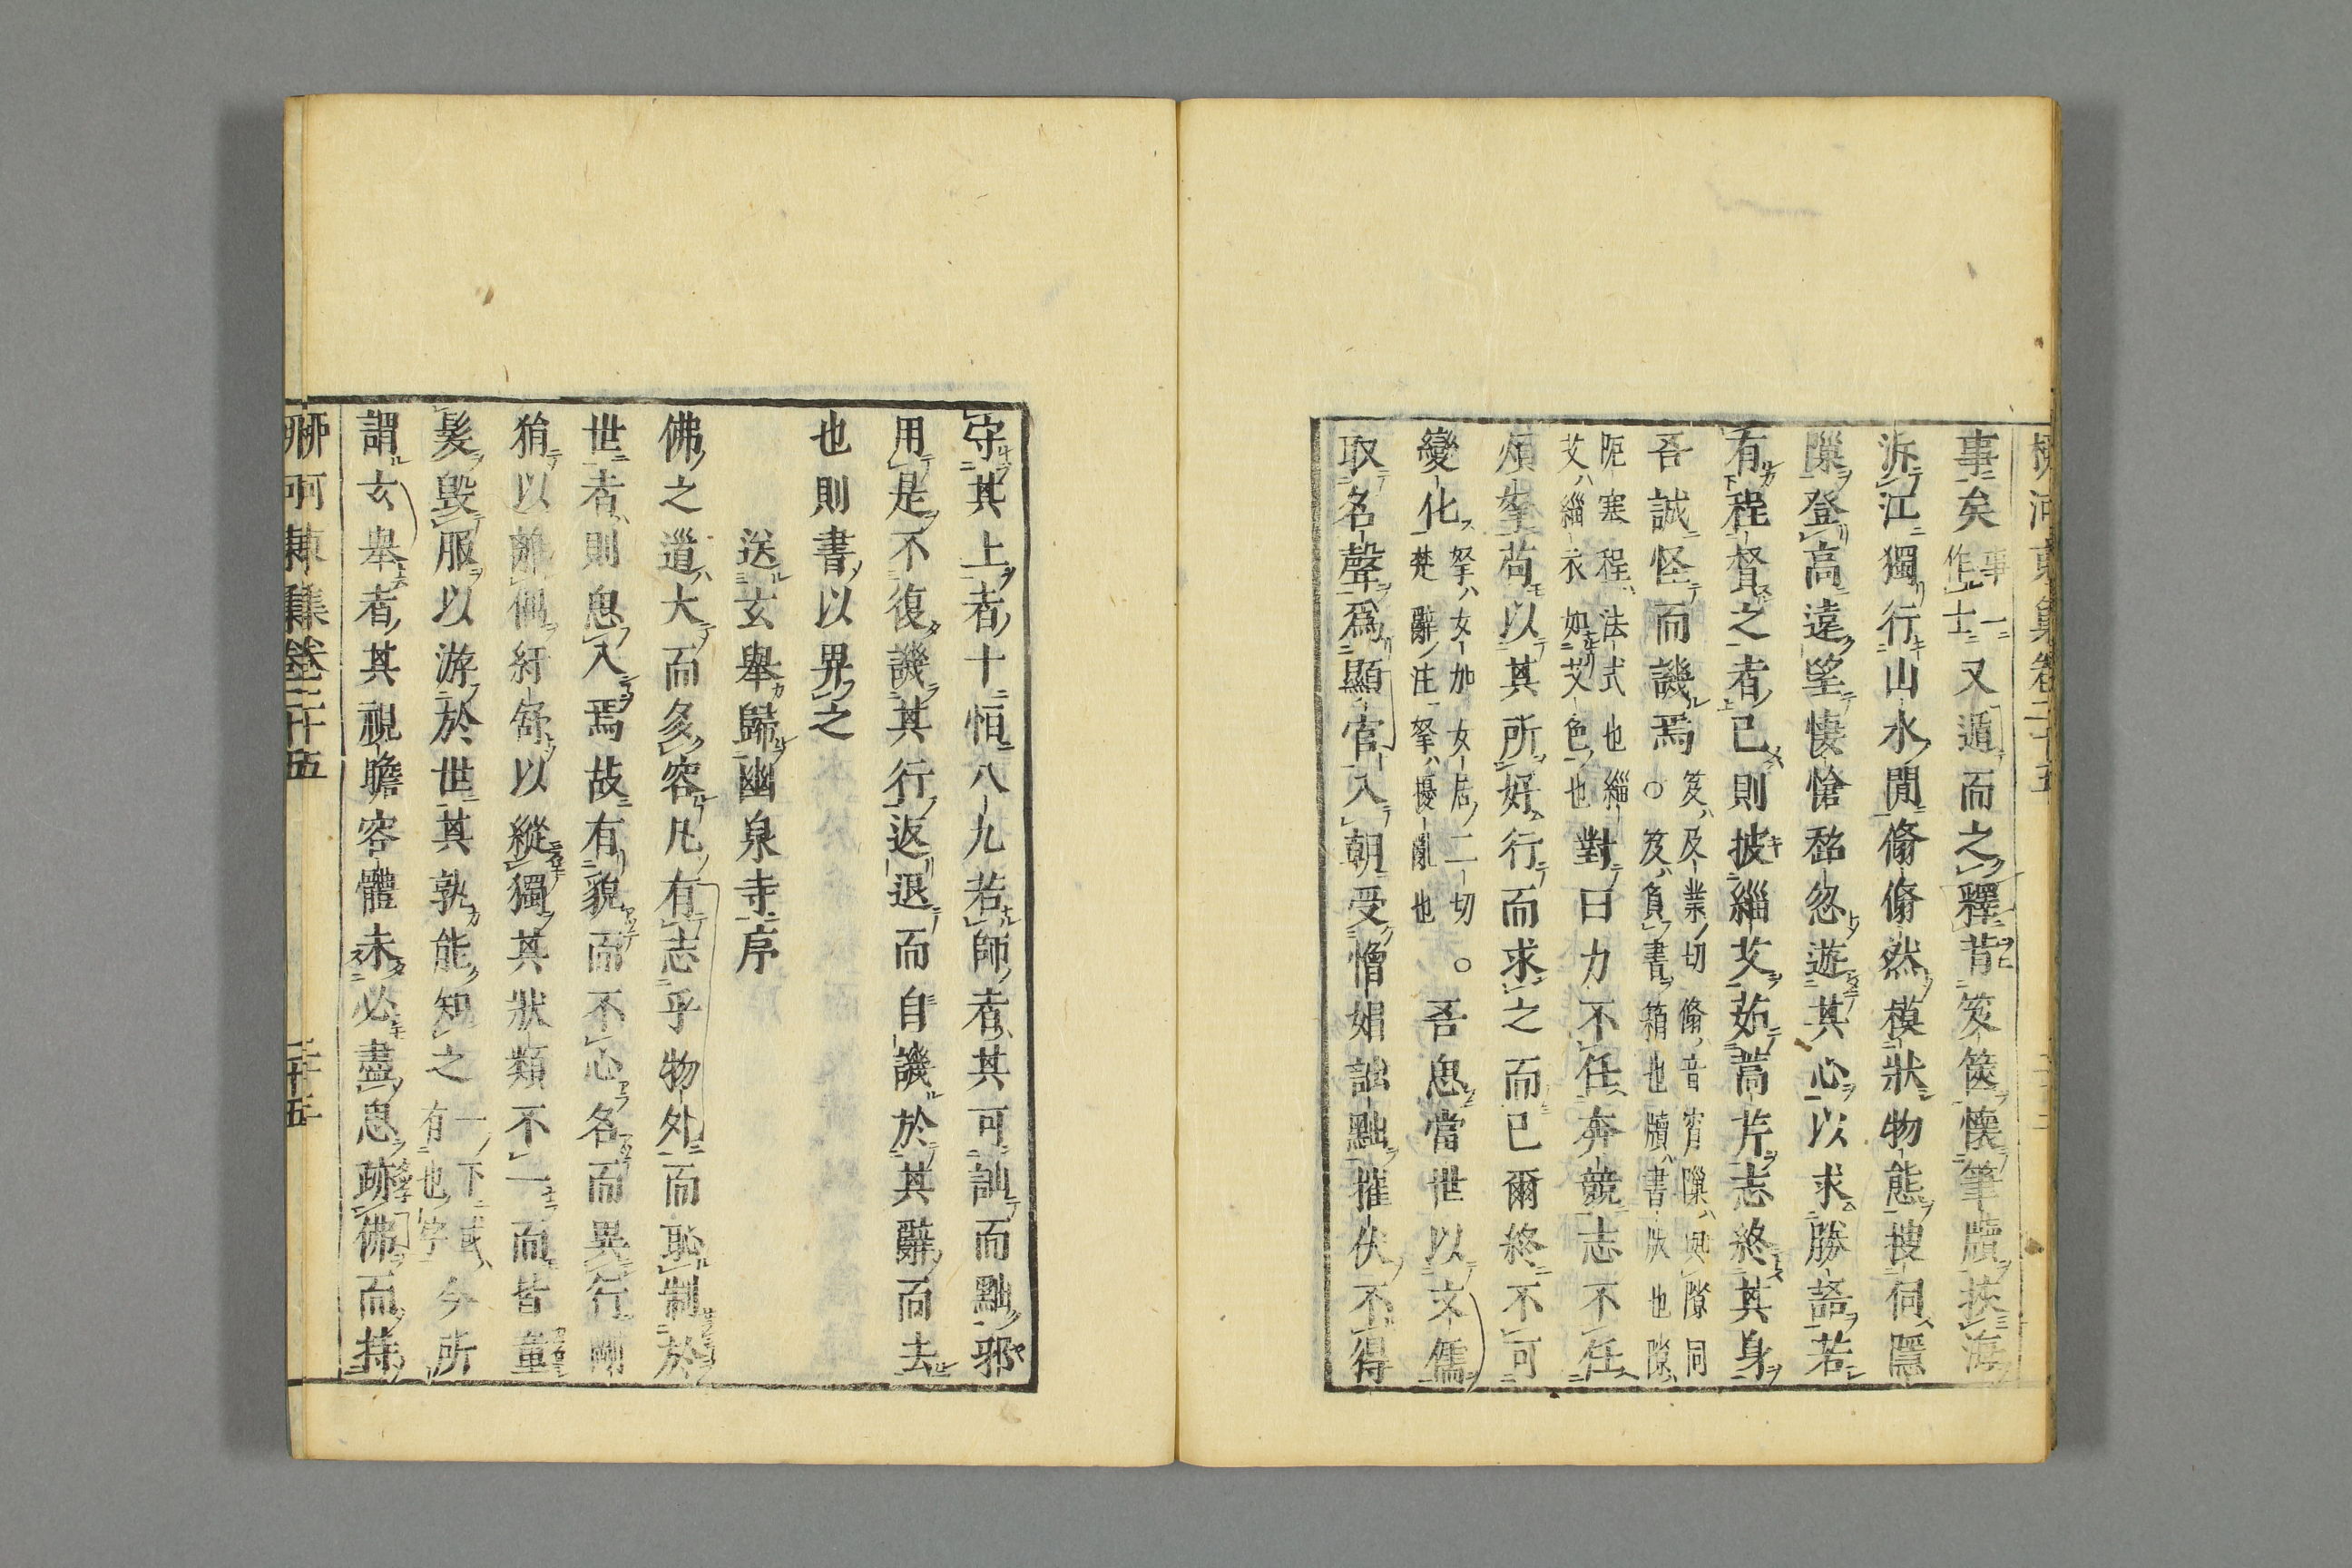 柳河東集卷二十五
事矣事一作士又遁而之釋背笈篋懷筆牘挾海
泝江獨行山水閒翛翛然模狀物態搜伺隱
隟登高遠望悽愴超忽遊其心以求勝語若
有程督之者已則披緇艾茹蒿芹志終其身
吾誠怪而譏焉笈及業切翛音宵隟與隙同〇笈負書箱也牘書版也隙
阸塞程法式也緇艾緇衣如艾色也對曰力不任奔競志不任
煩拏苟以其所好行而求之而已爾終不可
變化拏女加女居二切楚辭注拏擾亂也〇吾思當世以文儒
取名聲爲顯官入朝受憎媢訕黜摧伏不得
守其上者十恒八九若師者其可訕而黜邪
用是不復譏其行返退而自譏於其辭而去
也則書以畀之
送玄舉歸幽泉寺序
佛之道大而多容凡有志乎物外而恥制於
世者則思入焉故有貌而不心名而異行剛
狷以離偶紆舒以縱獨其狀類不一而皆童
髮毀服以游於世其孰能知之一下或有也字今所
謂玄舉者其視瞻容體未必盡思跡佛而持
柳河東集卷二十五
二十五